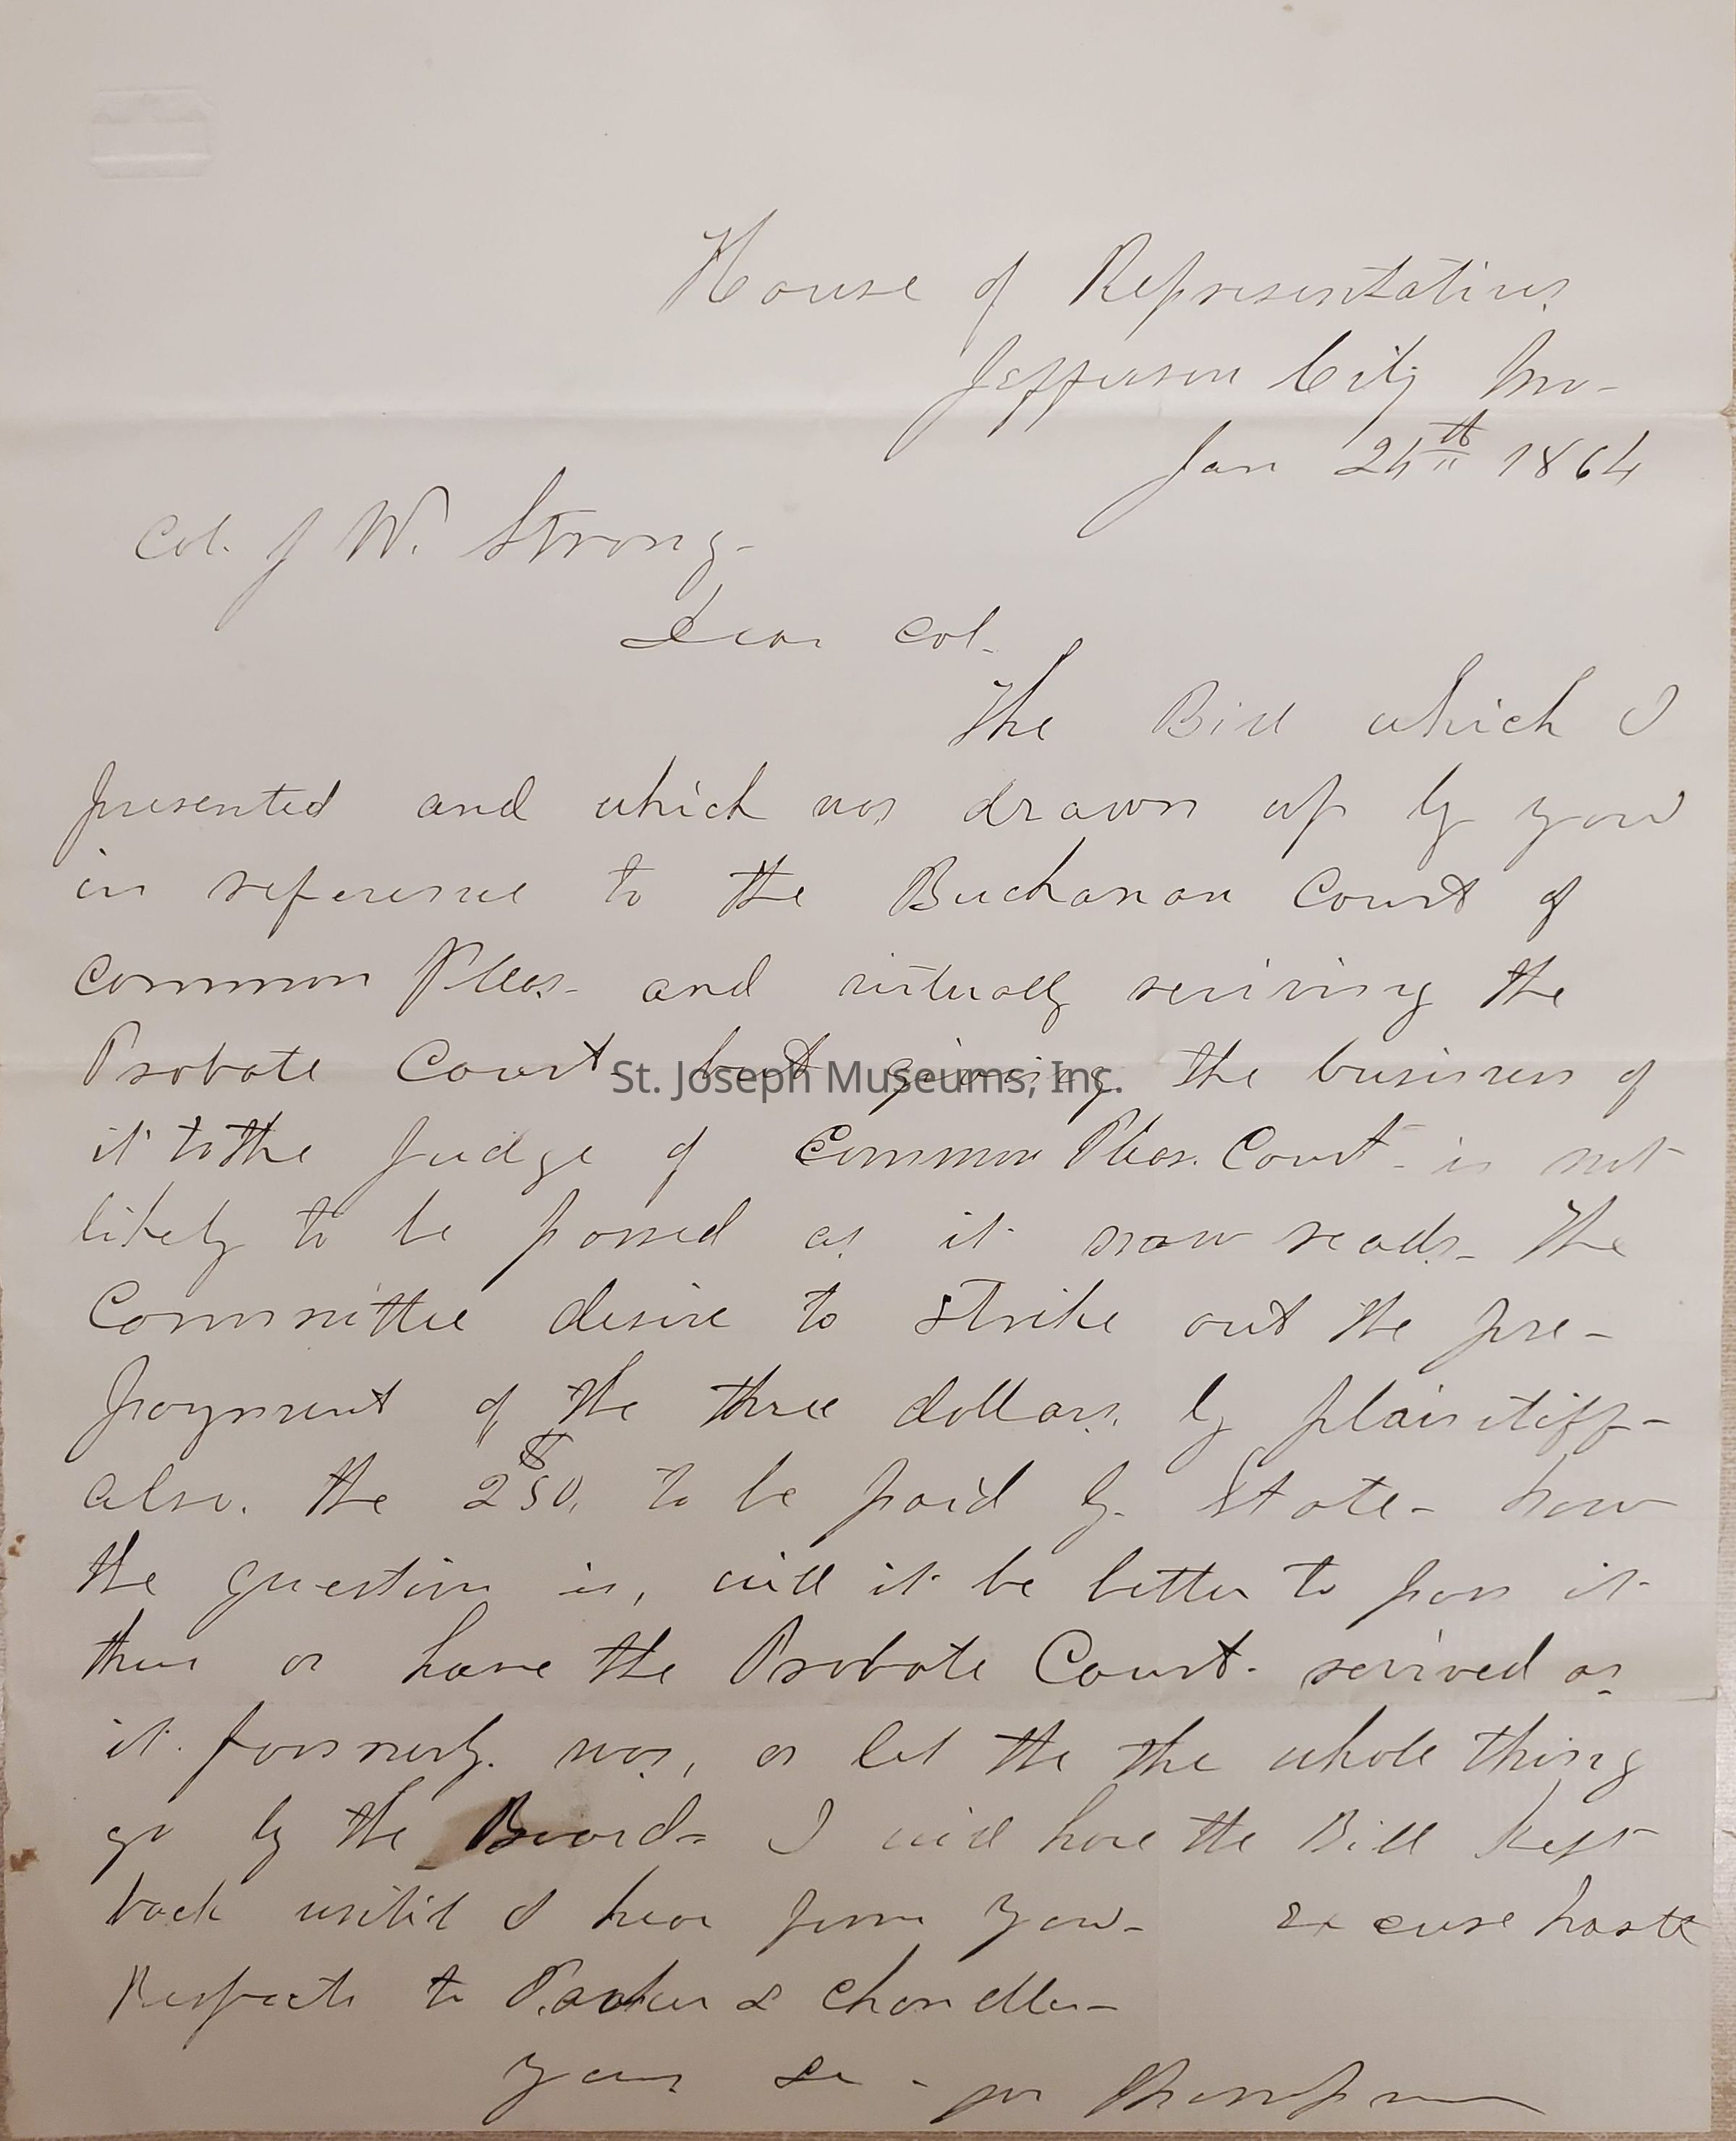 House of Representatives
Jefferson City Mo-
Jan 24th 1864
Col. J W. Strong-
Dear Col.
The Bill which I
presented and which was drawn up by you
in reference to the Buchanan Court of
Common Pleas- and virtually reviving the
Probate Court but giving the business of
it to the Judge of Common Pleas. Court- is not
likely to be passed as it now reads- The
Committee desire to strike out the pre-
payment of the three dollars. by plaintiff-
also. the $250, to be paid by- State- now
the question is, will it be better to pass it
thus or have the Probate Court- revived as
it formerly. was, or let the the whole thing
go by the Board- I will have the Bill kept
back until I hear from you- Excuse haste
Respects to Parker & Chandler-
Yours &c -
St. Joseph Museums, Inc.